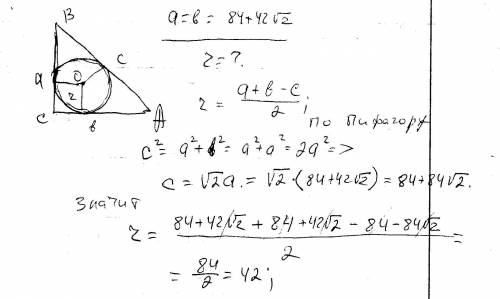 B
a = b = 84+42√2
a
c
O
r
C
b
A
r = ?
r = (a + b - c)/2 ;
по Пифагору
c² = a² + b² = a² + a² = 2a² =>
c = √2a. = √2 · (84+42√2) = 84+84√2.
Значит
r = (84+42√2 + 84+42√2 - 84 - 84√2)/2 =
= 84/2 = 42 ;